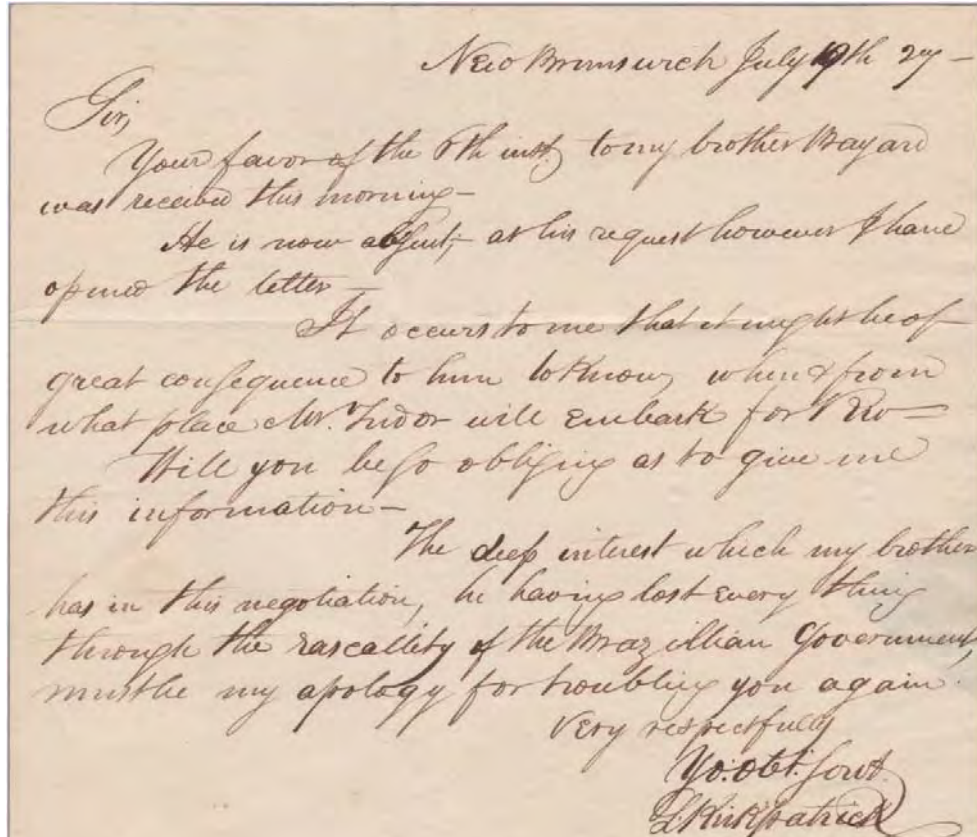 New Brunswick July 19th 27 —
Sir,
Your favor of the 8th inst, to my brother Bayard
was received this morning —
He is now absent, — at his request however I have
opened the letter —
It occurs to me that it might be of
great consequence to him to know, when & from
what place Mr. Tudor will embark for Rio —
Will you be so obliging as to give me
this information —
The deep interest which my brother
has in this negotiation, he having lost every thing
through the rascallity of the Brazillian Government,
must be my apology for troubling you again.
Very respectfully
Yo: obt. Servt.
L. Kirkpatrick